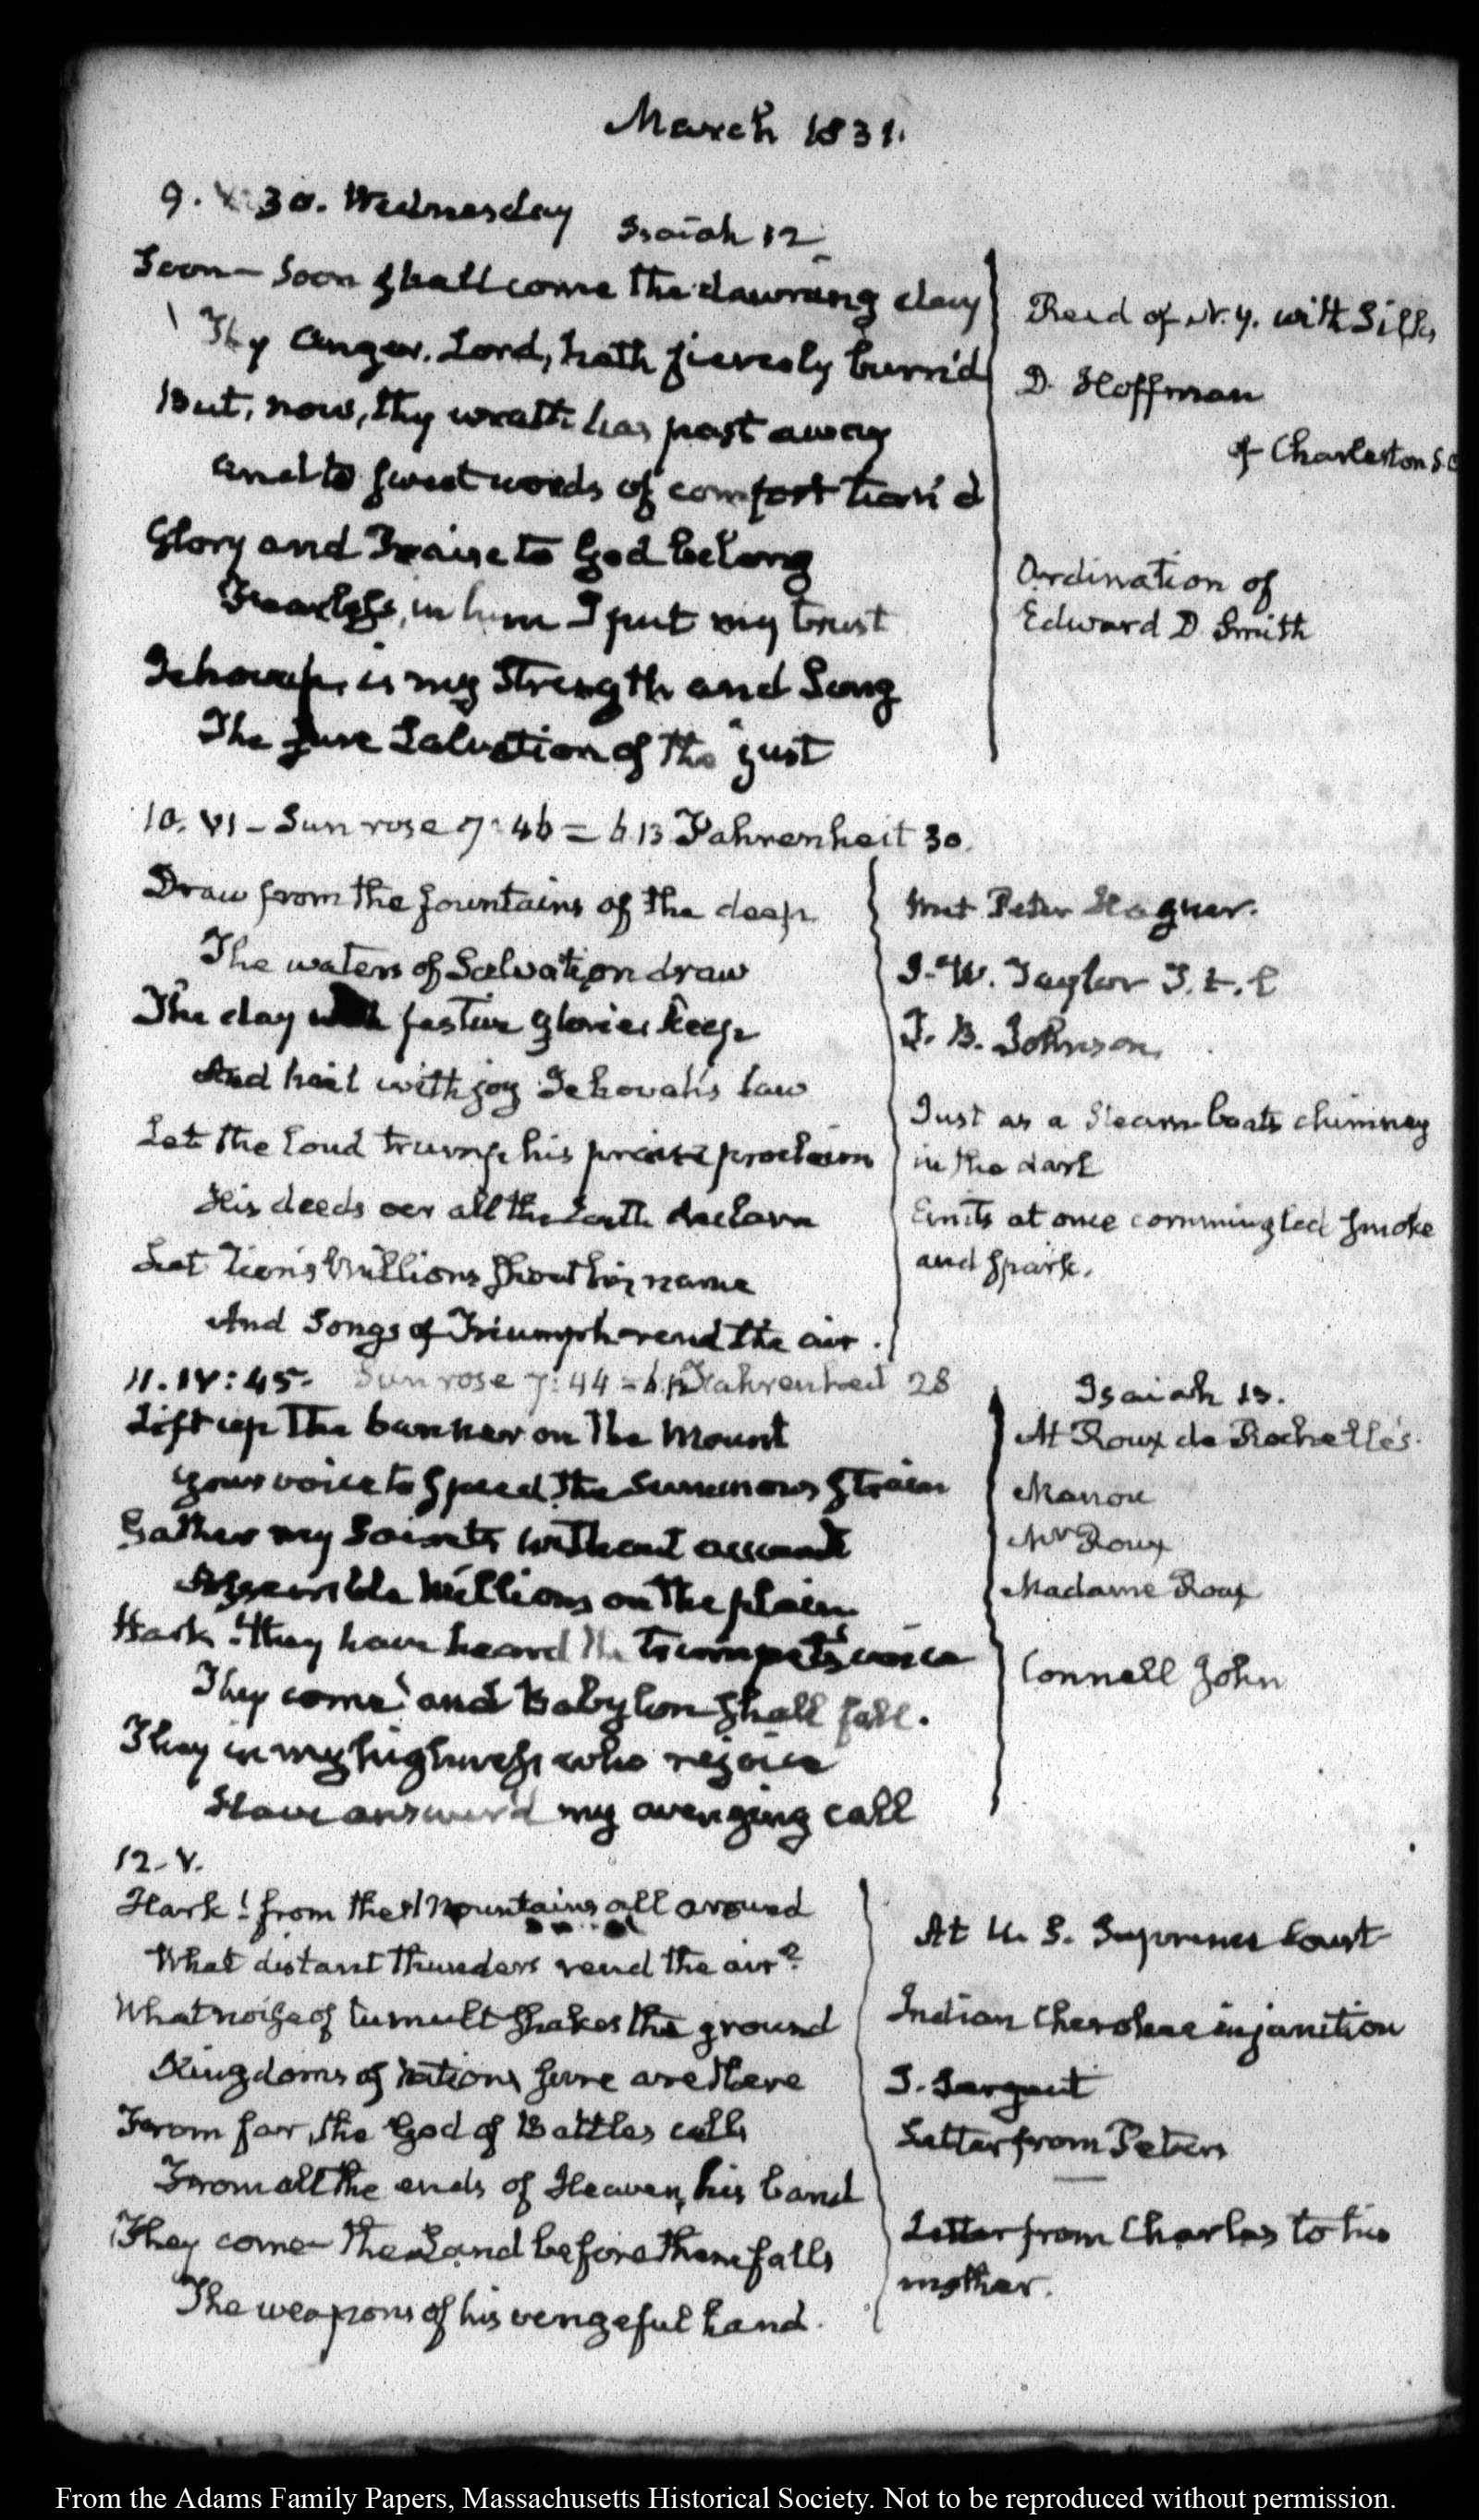 March 1831.
9. V:30. Wednesday
Isaiah 12
Soon — Soon shall come the dawning day
Thy anger, Lord, hath fiercely burn'd
But, now, thy wrath has past away
And to sweet words of comfort turn'd
Glory and Praise to God belong
Fearless, in him I put my trust
Jehovah, is my Strength and Song
The sure Salvation of the just
Reed of N.Y. with Silks
D. Hoffman
of Charleston S.C
Ordination of
Edward D Smith
10. VI — Sun rose 7:46 = 6.13 Fahrenheit 30.
Draw from the fountains of the deep
The waters of Salvation draw
The day with festive glories keep
And hail with joy Jehovah's law
Let the loud trump his praise proclaim
His deeds oer all the Earth declare
Let Zion's Millions shout his name
And Songs of Triumph rend the air.
met Peter Hagner.
J. W. Taylor
J. B. Johnson.
Just as a Steam-boats chimney
in the dark
Emits at once commingled smoke
and spark.
11. IV:45. Sun rose 7:44 = Fahrenheit 28
Lift up the banner on the Mount
Your voice to speed the summons strain
Gather my Saints without
Assemble Millions on the plain
Hark! they have heard the trumpet's voice
They come! and Babylon shall fall.
They in my highness who rejoice
Have answer'd my avenging call
Isaiah 13.
At Roux de Rochelle's.
Mr Roux
Madame Roux
Connell John
12. V.
Hark! from the Mountains all around
What distant thunders rend the air?
What noise of tumult shakes the ground
Kingdoms of nations sure are there
From far, the God of Battles calls
From all the ends of Heaven, his band
They come — the Land before them falls
The weapons of his vengeful hand.
At U. S. Supreme Court
Indian Cherokee injunction
J. Sergeant
Letter from Peters
Letter from Charles to his
mother.
From the Adams Family Papers, Massachusetts Historical Society. Not to be reproduced without permission.